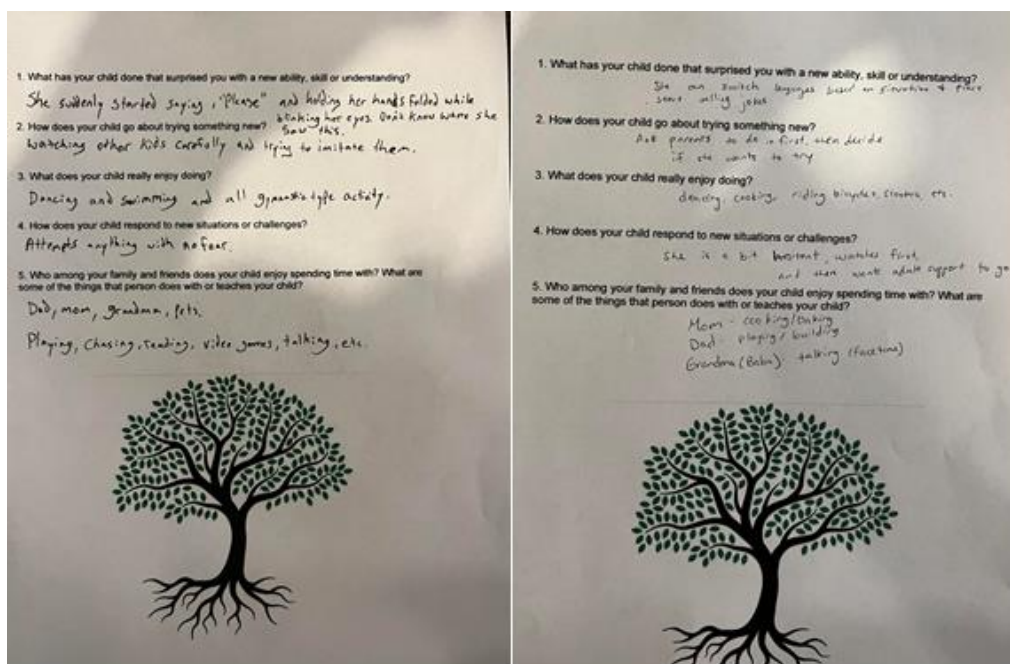 1. What has your child done that surprised you with a new ability, skill or understanding?
She suddenly started saying, "Please" and holding her hands folded while
blinking her eyes. Don't know where she
saw this.
2. How does your child go about trying something new?
Watching other kids carefully and trying to imitate them.
3. What does your child really enjoy doing?
Dancing and swimming and all gymnastic type activity.
4. How does your child respond to new situations or challenges?
Attempts anything with no fear.
5. Who among your family and friends does your child enjoy spending time with? What are
some of the things that person does with or teaches your child?
Dad, mom, grandma, pets.
Playing, chasing, reading, video games, talking, etc.
1. What has your child done that surprised you with a new ability, skill or understanding?
She can switch languages based on situation & place
telling jokes
2. How does your child go about trying something new?
Ask parents to do it first, then decide
if she wants to try
3. What does your child really enjoy doing?
dancing, cooking, riding bicycles, scooters, etc.
4. How does your child respond to new situations or challenges?
She is a bit hesitant, watches first,
and then wants adult support to go
5. Who among your family and friends does your child enjoy spending time with? What are
some of the things that person does with or teaches your child?
Mom - cooking/baking
Dad - playing/building
Grandma (Baba) - talking (facetime)